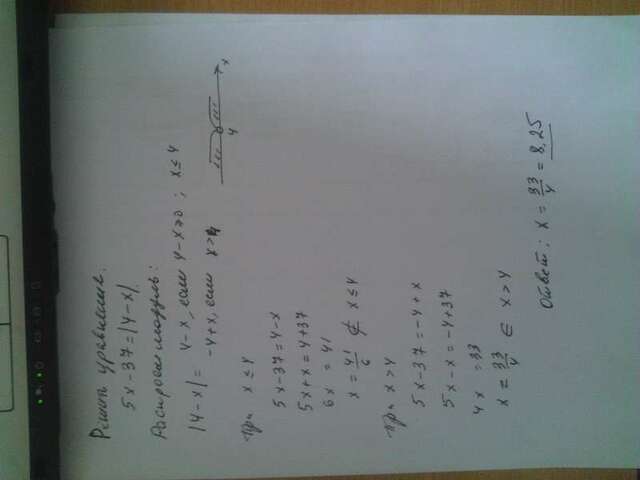 Решить уравнение.
5x-37=|4-x|
Раскроем модуль:
|4-x| = 4-x, если 4-x≥0; x≤4
-4+x, если x>4
4 x
при x≤4
5x-37=4-x
5x+x=4+37
6x=41
x=41/6 ∉ x≤4
при x>4
5x-37=-4+x
5x-x=-4+37
4x=33
x=33/4 ∈ x>4
Ответ: x=33/4=8,25